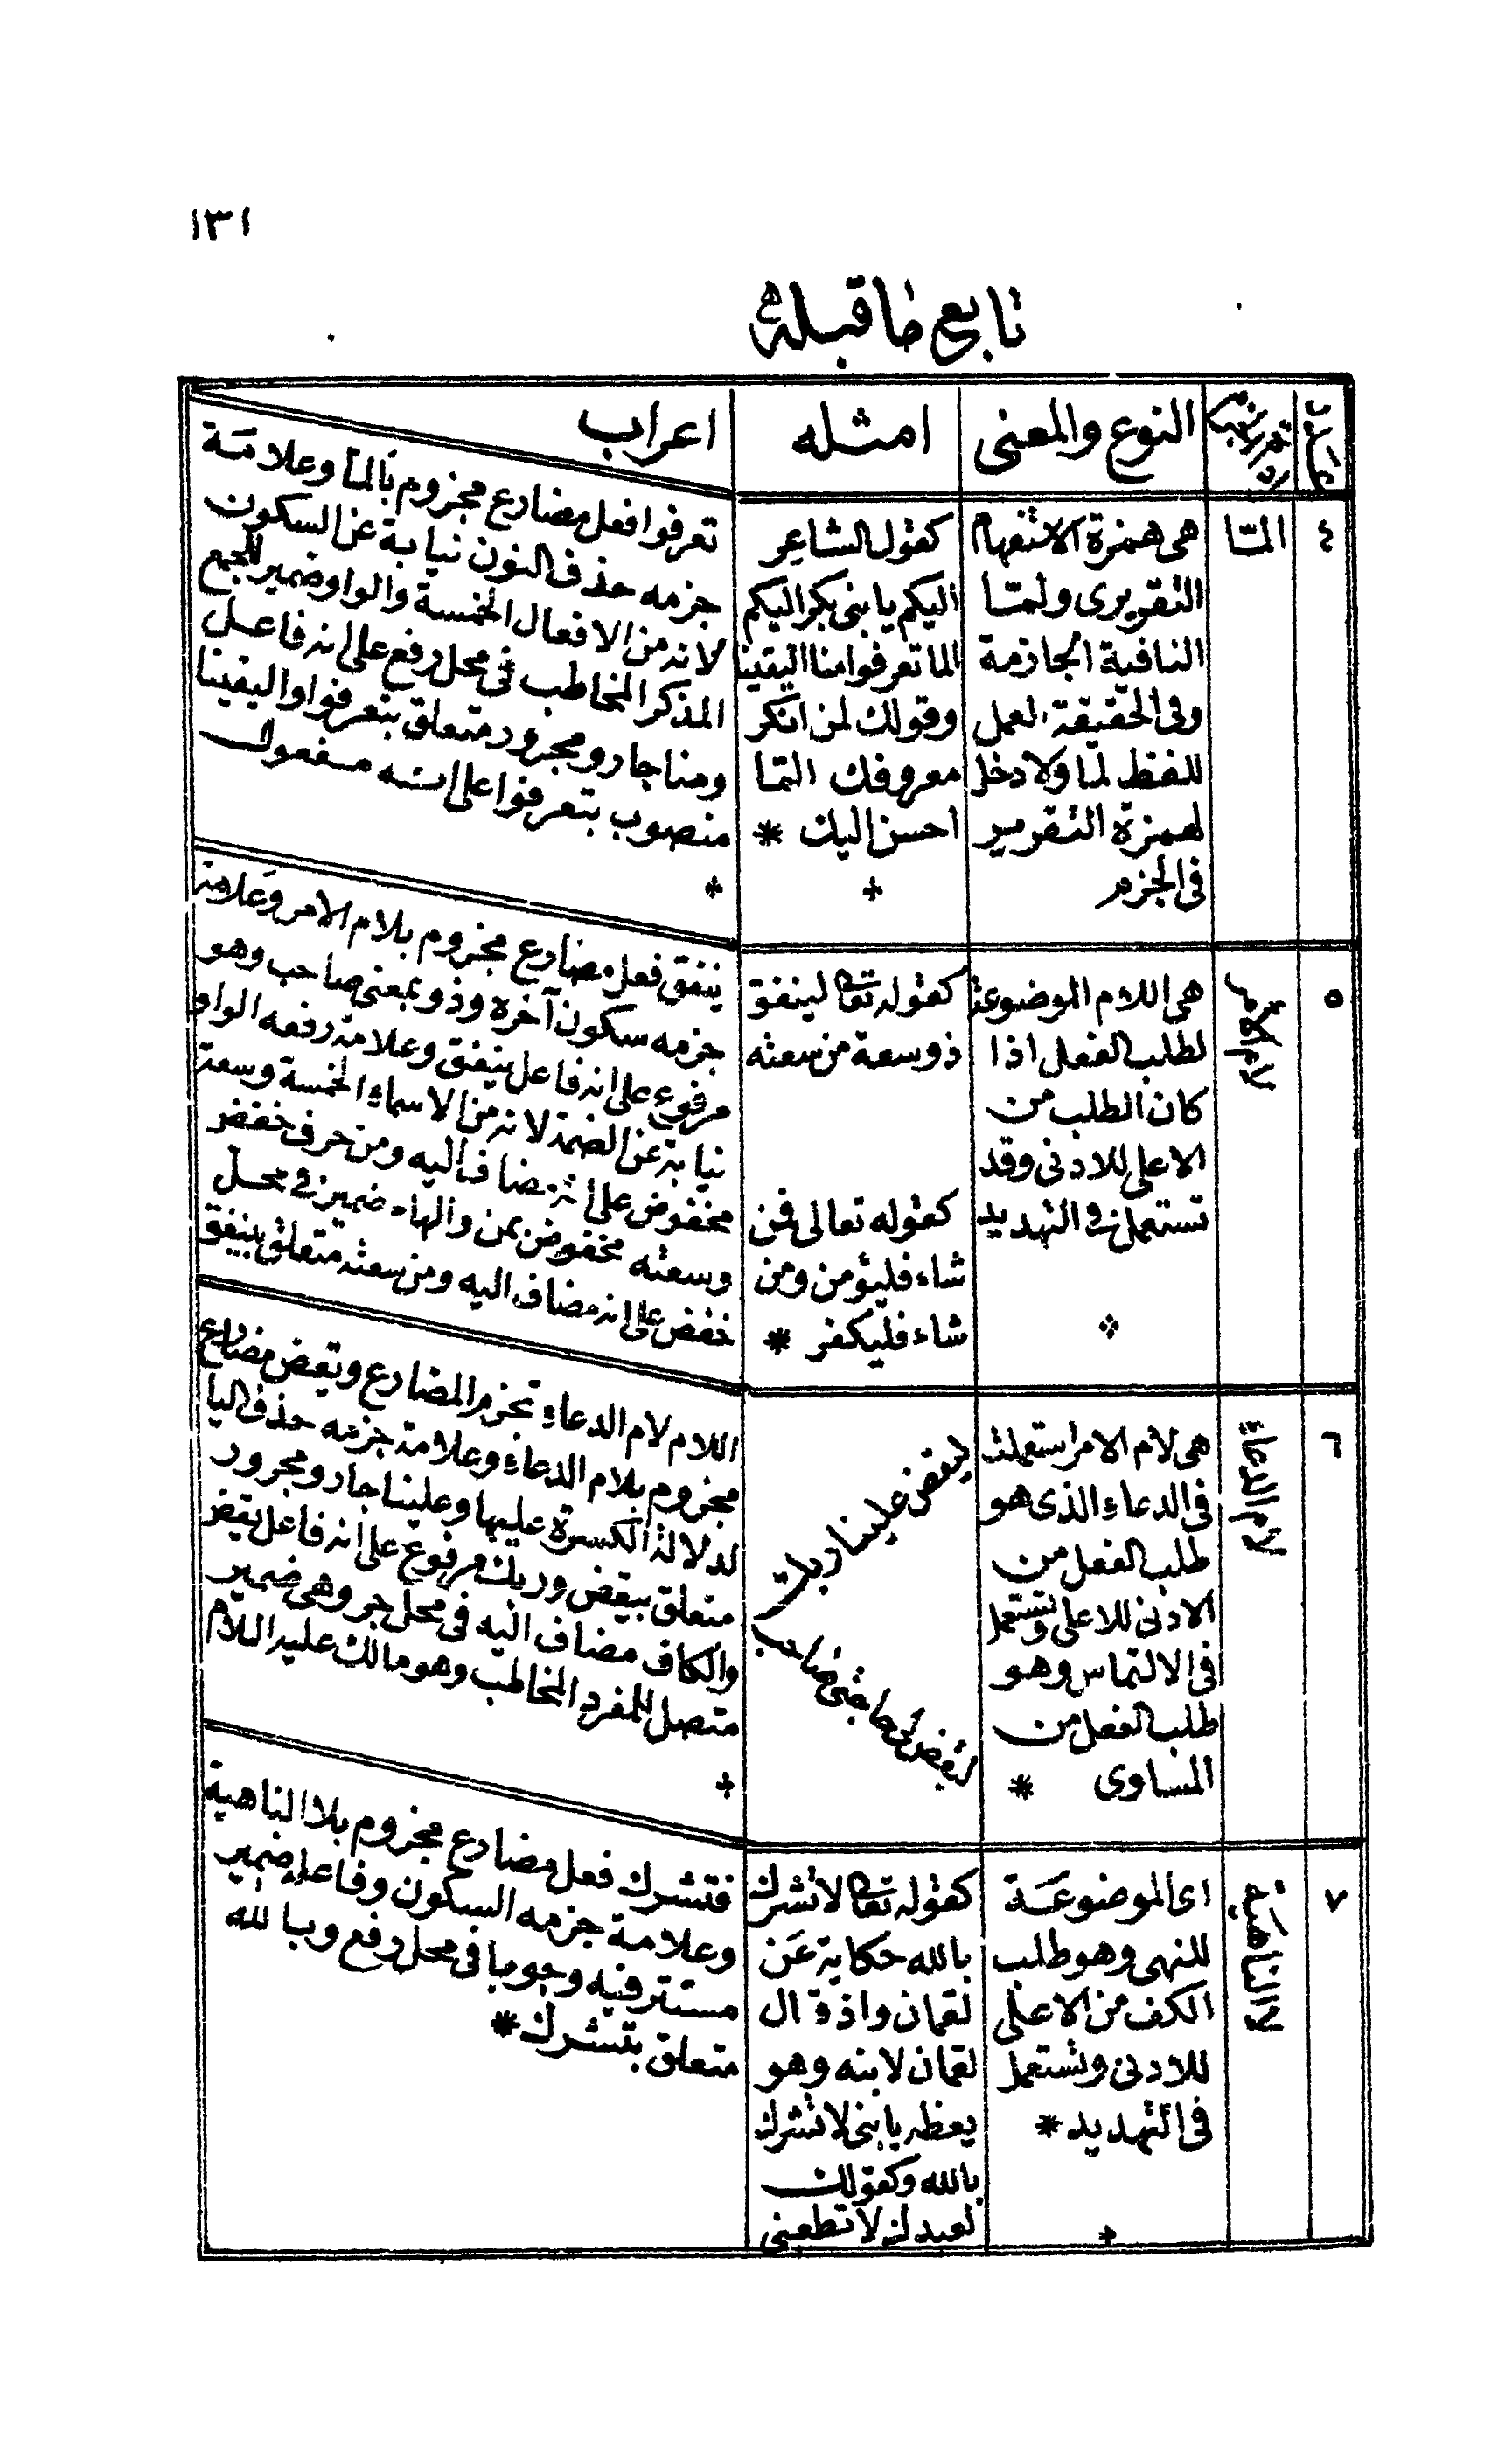 ١٣١
تابع ما قبله
عدد
النوع والمعنى
امثله
اعراب
٤
المّا
هى همزة الاستفهام
التقريرى ولمّا
النافية الجازمة
وفى الحقيقة العمل
للفظ لما ولا دخل
لهمزة التقرير
فى الجزم
كقول الشاعر
اليكم يا بنى بكر اليكم
الما تعرفوا منا اليقينا
وقولك لمن انكر
معروفك المّا
احسن اليك *
تعرفوا فعل مضارع مجزوم بالما وعلامة
جزمه حذف النون نيابة عن السكون
لانه من الافعال الخمسة والواو ضمير للجمع
المذكر المخاطب فى محل رفع على انه فاعل
ومنا جار ومجرور متعلق بتعرفوا واليقينا
منصوب بتعرفوا على انه مفعول
٥
لام الامر
هى اللام الموضوعة
لطلب الفعل اذا
كان الطلب من
الاعلى للادنى وقد
تستعمل فى التهديد
كقوله تعالى لينفق
ذو سعة من سعته
كقوله تعالى فمن
شاء فليؤمن ومن
شاء فليكفر *
ينفق فعل مضارع مجزوم بلام الامر وعلامة
جزمه سكون آخره وذو بمعنى صاحب وهو
مرفوع على انه فاعل ينفق وعلامة رفعه الواو
نيابة عن الضمة لانه من الاسماء الخمسة وسعة
مخفوض على انه مضاف اليه ومن حرف خفض
وسعته مخفوض بمن والهاء ضمير فى محل
خفض على انه مضاف اليه ومن سعته متعلق بينفق
٦
لام الدعاء
هى لام الامر استعملت
فى الدعاء الذى هو
طلب الفعل من
الادنى للاعلى وتستعمل
فى الالتماس وهو
طلب الفعل من
المساوى *
ليقض علينا ربك
لتقض لى حاجتى يا صاحب
اللام لام الدعاء تجزم المضارع ويقض مضارع
مجزوم بلام الدعاء وعلامة جزمه حذف اليا
لدلالة الكسرة عليها وعلينا جار ومجرور
متعلق بيقض وربك مرفوع على انه فاعل يقض
والكاف مضاف اليه فى محل جر وهى ضمير
متصل للمفرد المخاطب وهو مالك عليه اللام
٧
لا الناهية
اى الموضوعة
للنهى وهو طلب
الكف من الاعلى
للادنى وتستعمل
فى التهديد *
كقوله تعالى لا تشرك
بالله حكاية عن
لقمان واذ قال
لقمان لابنه وهو
يعظه يا بنى لا تشرك
بالله وكقولك
لعبدك لا تطعنى
فتشرك فعل مضارع مجزوم بلا الناهية
وعلامة جزمه السكون وفاعله ضمير
مستتر فيه وجوبا فى محل رفع وبالله
متعلق بتشرك *